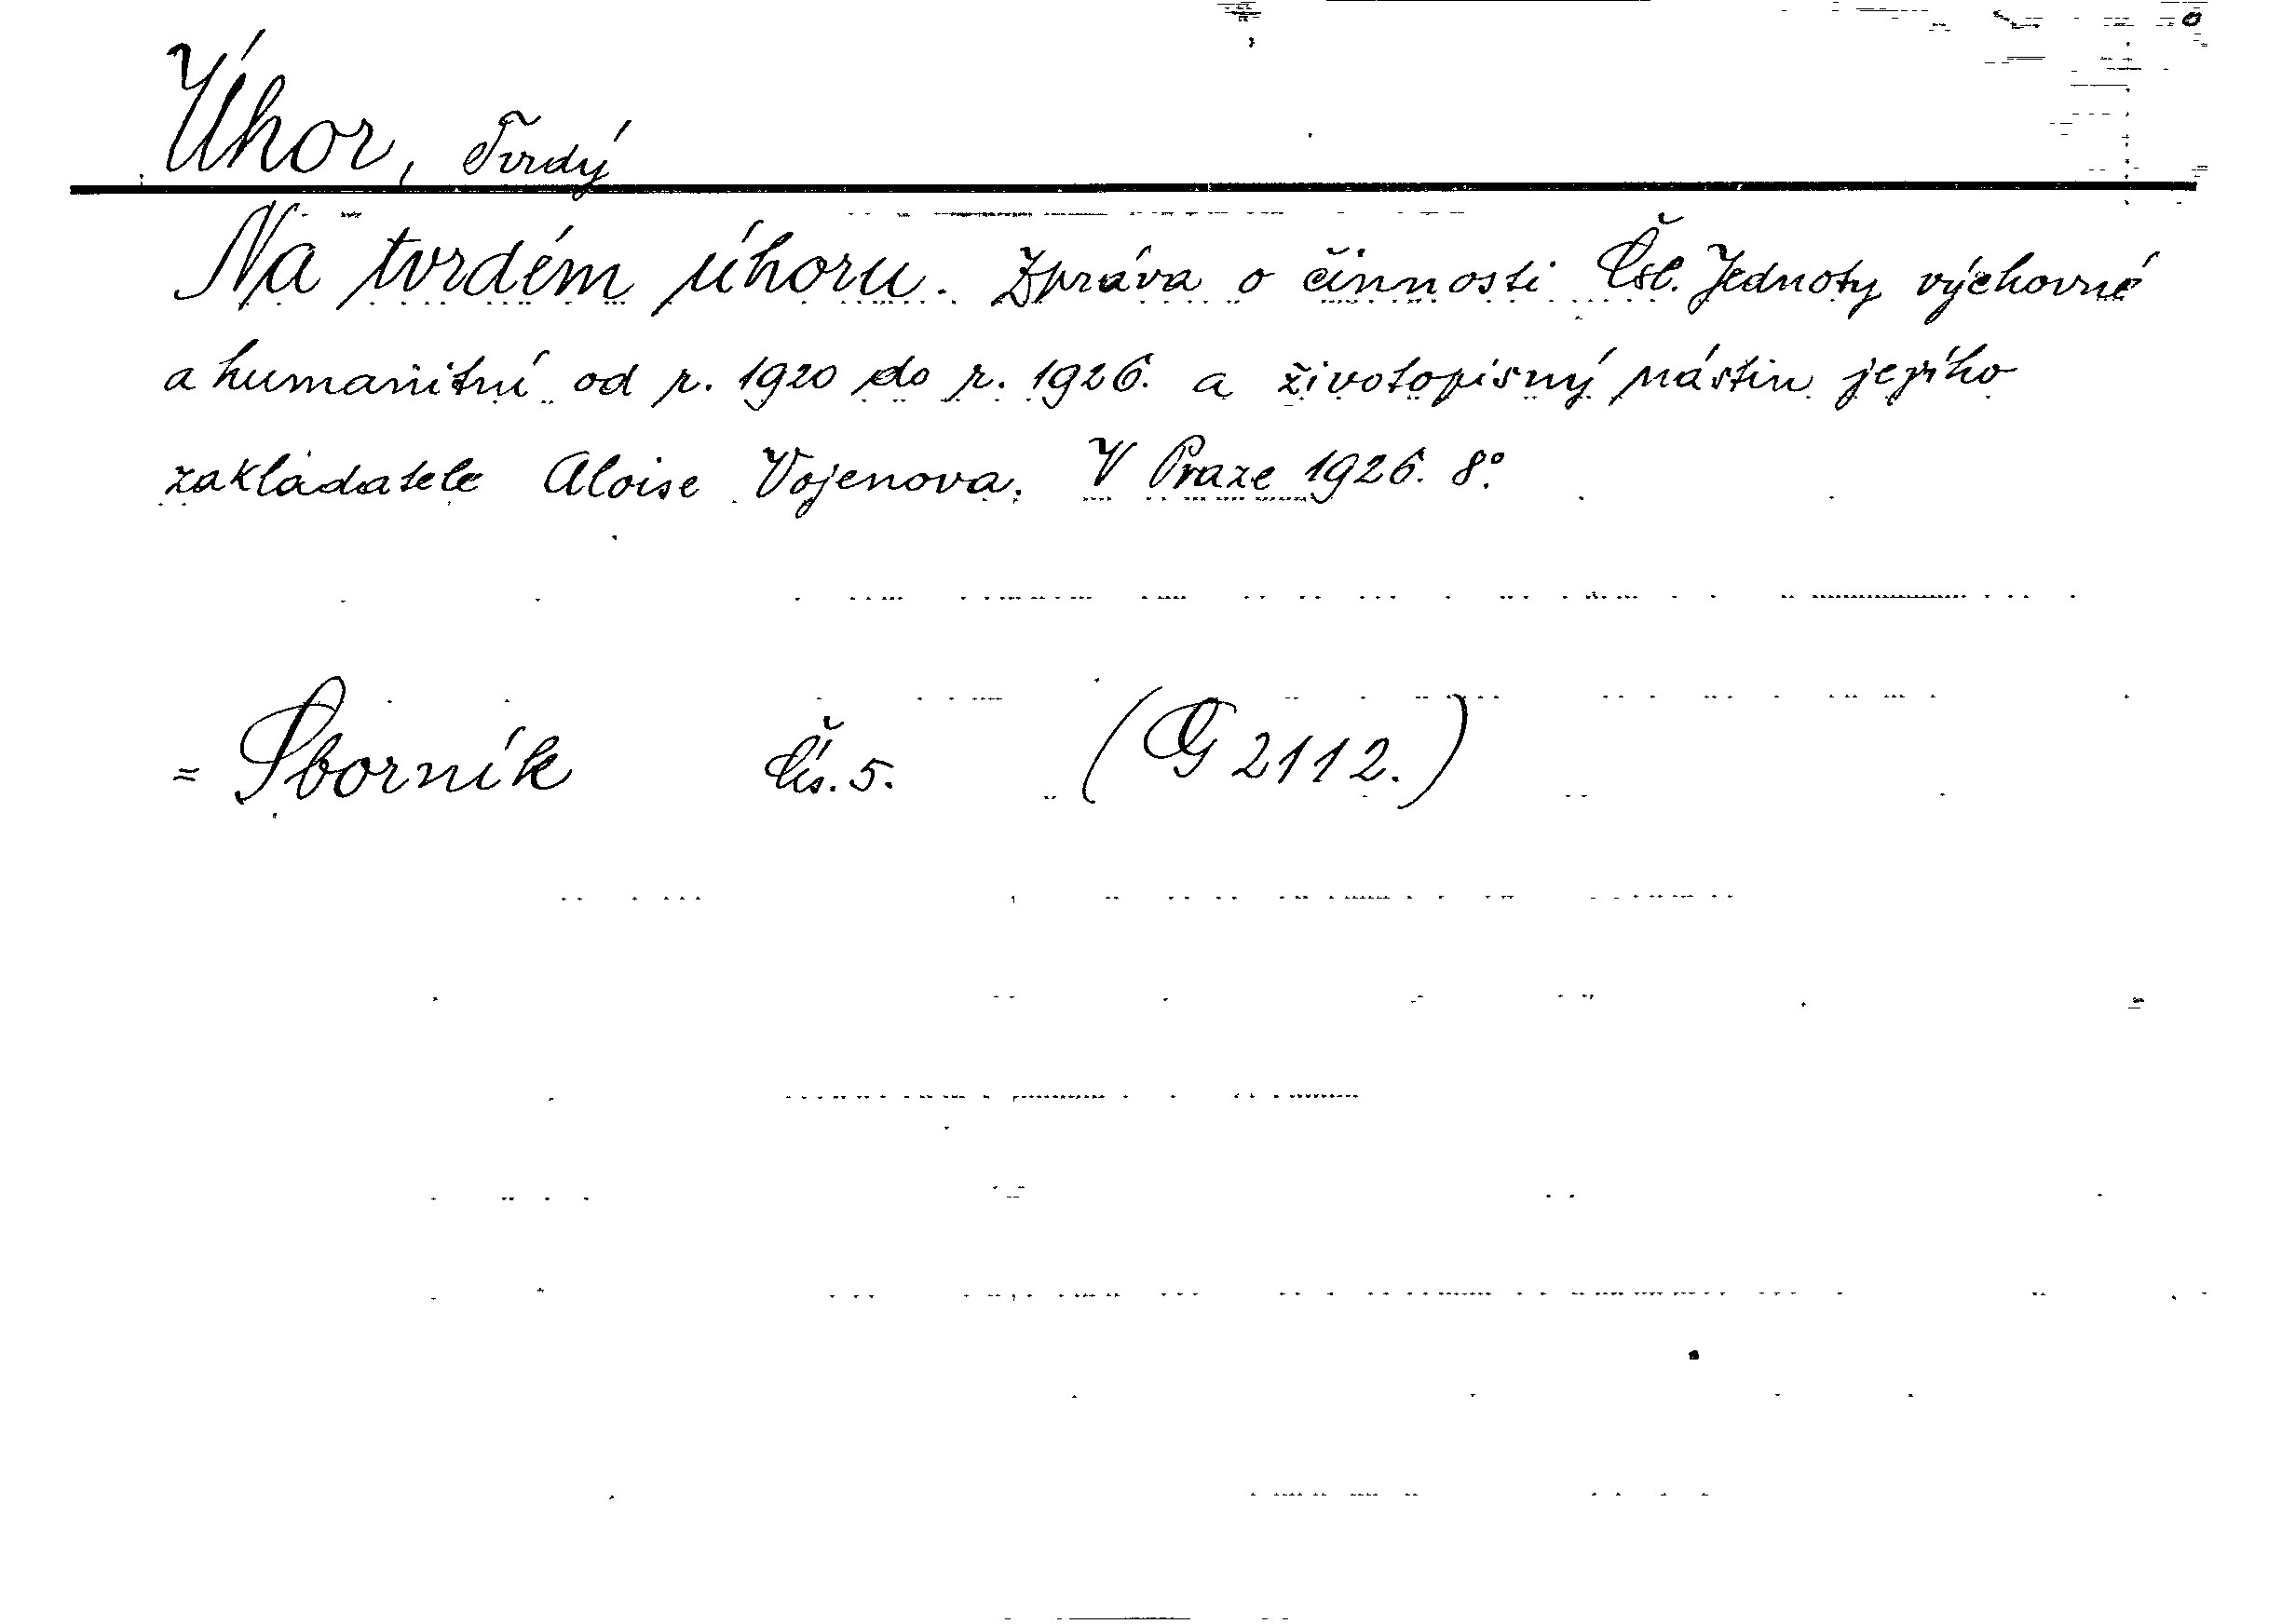 Úhor, Tvrdý
Na tvrdém úhoru. Zpráva o činnosti Čsl. Jednoty výchovné
a humanitní od r. 1920 do r. 1926. a životopisný nástin jejího
zakladatele Aloise Vojenova. V Praze 1926. 8°.
= Sborník Čís. 5. (G 2112.)